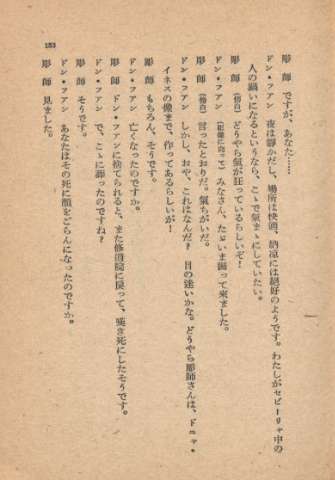 153
彫　師　ですが、あなた……
ドン・フアン　夜は靜かだし、場所は快適、納涼には絶好のようです。わたしがセビーリャ中の
人の禍いになるというなら、こゝで氣まゝにしていたい。
彫　師　（傍白）どうやら氣が狂っているらしいぞ！
ドン・フアン　（彫像に向って）みなさん、たゞいま歸って來ました。
彫　師　（傍白）言ったとおりだ。氣ちがいだ。
ドン・フアン　しかし、おや、これはなんだ？　目の迷いかな。どうやら彫師さんは、ドニャ・
イネスの像まで、作ってあるらしいが！
彫　師　もちろん、そうです。
ドン・フアン　亡くなったのですか。
彫　師　ドン・フアンに捨てられると、また修道院に戾って、歎き死にしたそうです。
ドン・フアン　で、こゝに葬ったのですね？
彫　師　そうです。
ドン・フアン　あなたはその死に顏をごらんになったのですか。
彫　師　見ました。